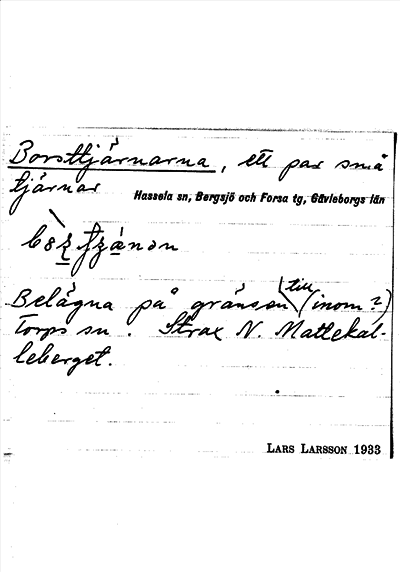 Borsttjärnarna, ett par små
tjärnar
Hassela sn, Bergsjö och Forsa tg, Gävleborgs län
till
Belägna på gränsen (inom?)
Torps sn. Strax N. Mattekal-
leberget.
LARS LARSSON 1933